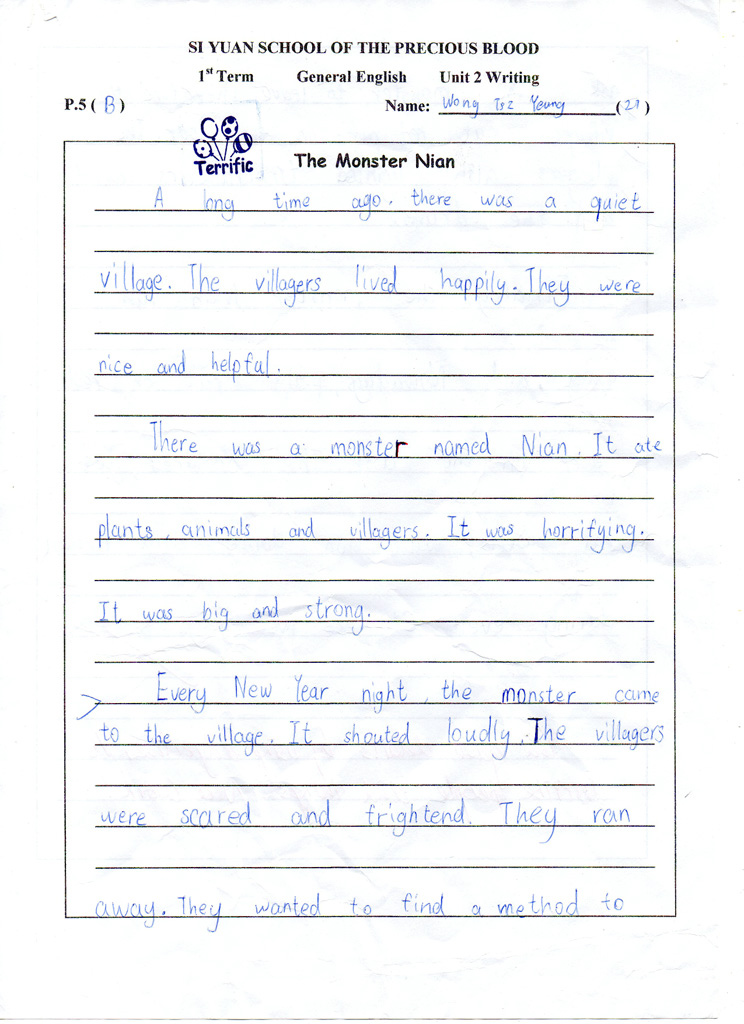 SI YUAN SCHOOL OF THE PRECIOUS BLOOD
1st Term General English Unit 2 Writing
P.5 ( B ) Name: Wong Tsz Yeung ( 21 )
Terrific
The Monster Nian
A long time ago, there was a quiet
village. The villagers lived happily. They were
nice and helpful.
There was a monster named Nian. It ate
plants, animals and villagers. It was horrifying.
It was big and strong.
Every New Year night, the monster came
to the village. It shouted loudly. The villagers
were scared and frightend. They ran
away. They wanted to find a method to